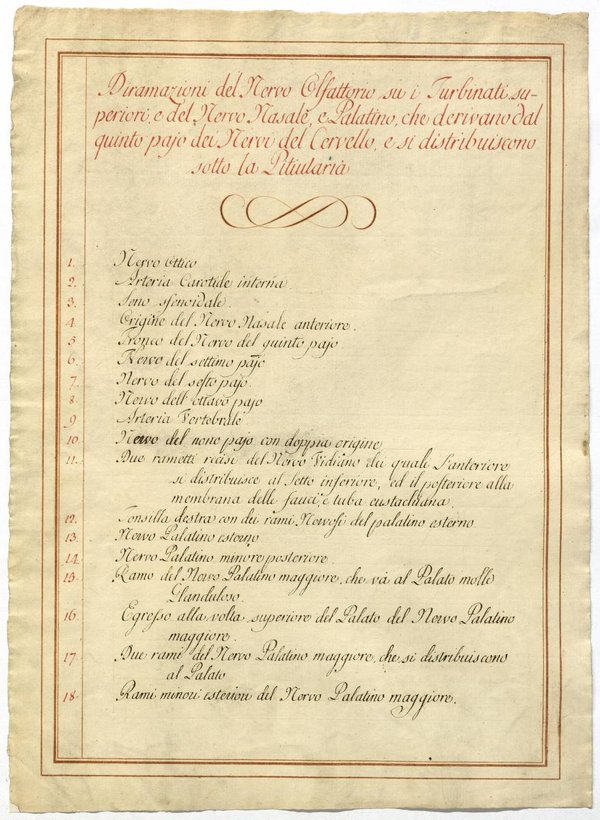 Diramazioni del Nervo Olfattorio su i Turbinati su-
periori, e del Nervo Nasale, e Palatino, che derivano dal
quinto pajo dei Nervi del Cervello, e si distribuiscono
sotto la Pitiularia
1. Nervo Ottico
2. Arteria Carotide interna
3. Seno sfenoidale.
4. Origine del Nervo Nasale anteriore.
5 Tronco del Nervo del quinto pajo
6. Nervo del settimo pajo
7. Nervo del sesto pajo.
8. Nervo dell'ottavo pajo
9 Arteria Vertebrale
10. Nervo del nono pajo con doppia origine
11. Due rametti recisi del Nervo Vidiano dei quali l'anteriore
si distribuisce al setto inferiore, ed il posteriore alla
membrana delle fauci, e tuba eustachiana.
12. Tonsilla destra con dei rami Nervosi del palatino esterno
13. Nervo Palatino esterno
14. Nervo Palatino minore posteriore.
15. Ramo del Nervo Palatino maggiore, che và al Palato molle
Glanduloso.
16. Egresso alla volta superiore del Palato del Nervo Palatino
maggiore.
17. Due rami del Nervo Palatino maggiore, che si distribuiscono
al Palato
18. Rami minori esteriori del Nervo Palatino maggiore.